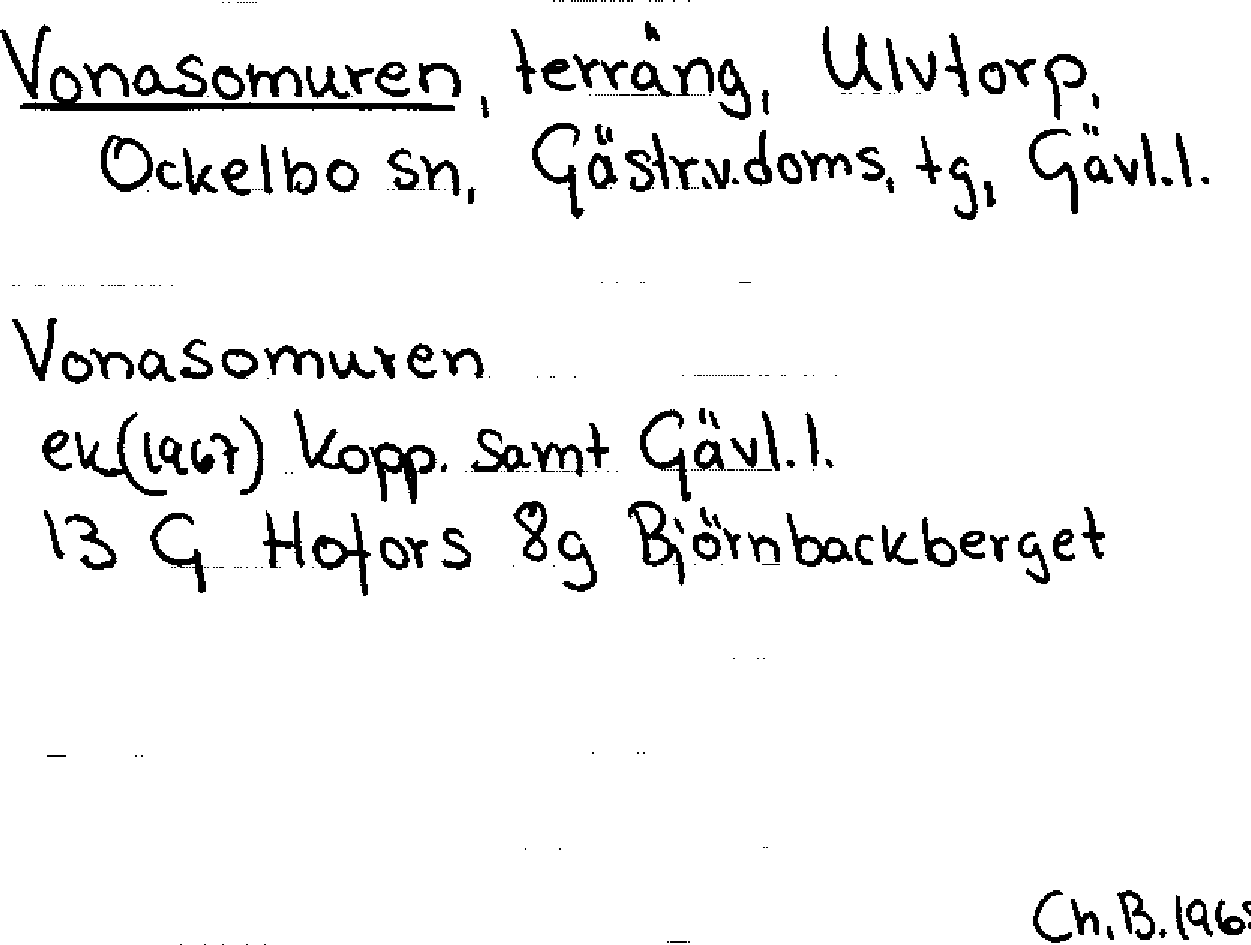 Vonasomuren, terräng, Ulvtorp,
Ockelbo sn, Gästr.v.doms. tg, Gävl.l.
Vonasomuren
ek(1967) Kopp. samt Gävl.l.
13 G Hofors 8g Björnbackberget
Ch.B.